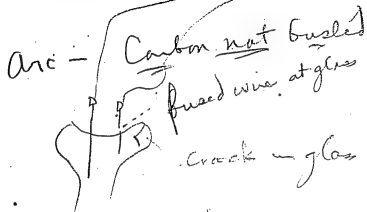 Arc - Carbon not busted
fused wire at glass
crack in glass